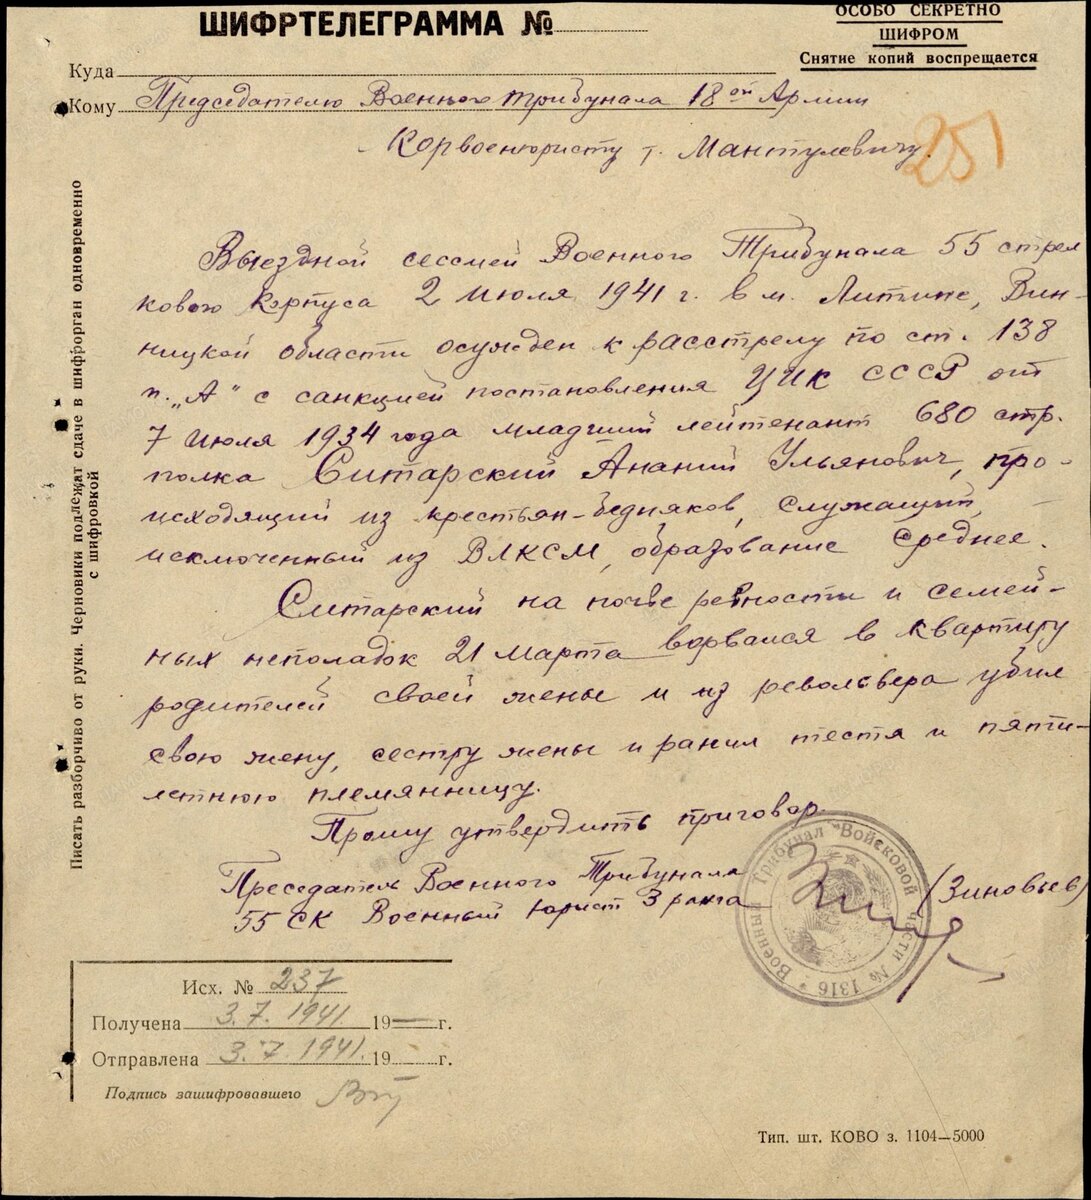 ШИФРТЕЛЕГРАММА №
ОСОБО СЕКРЕТНО
ШИФРОМ
Снятие копий воспрещается
Куда
Кому Председателю Военного трибунала 18ой Армии
Корвоенюристу т. Мантулевичу.
251
Выездной сессией Военного Трибунала 55 стрел
кового корпуса 2 июля 1941 г. в м. Литине, Вин-
ницкой области осужден к расстрелу по ст. 138
п. „А" с санкцией постановления ЦИК СССР от
7 июля 1934 года младший лейтенант 680 стр.
полка Ситарский Ананий Ульянович, про-
исходящий из крестьян-бедняков, служащий,
исключенный из ВЛКСМ, образование среднее.
Ситарский на почве ревности и семей-
ных неполадок 21 марта ворвался в квартиру
родителей своей жены и из револьвера убил
свою жену, сестру жены и ранил тестя и пяти-
летнюю племянницу.
Прошу утвердить приговор.
Преседатель Военного Трибунала
55 СК Военный юрист 3 ранга (Зиновьев)
Военный Трибунал Войсковой части № 1316
Писать разборчиво от руки. Черновики подлежат сдаче в шифрорган одновременно
с шифровкой
Исх. № 237
Получена 3.7.1941. 19 — г.
Отправлена 3.7.1941. 19 г.
Подпись зашифровавшего
Тип. шт. КОВО з. 1104—5000